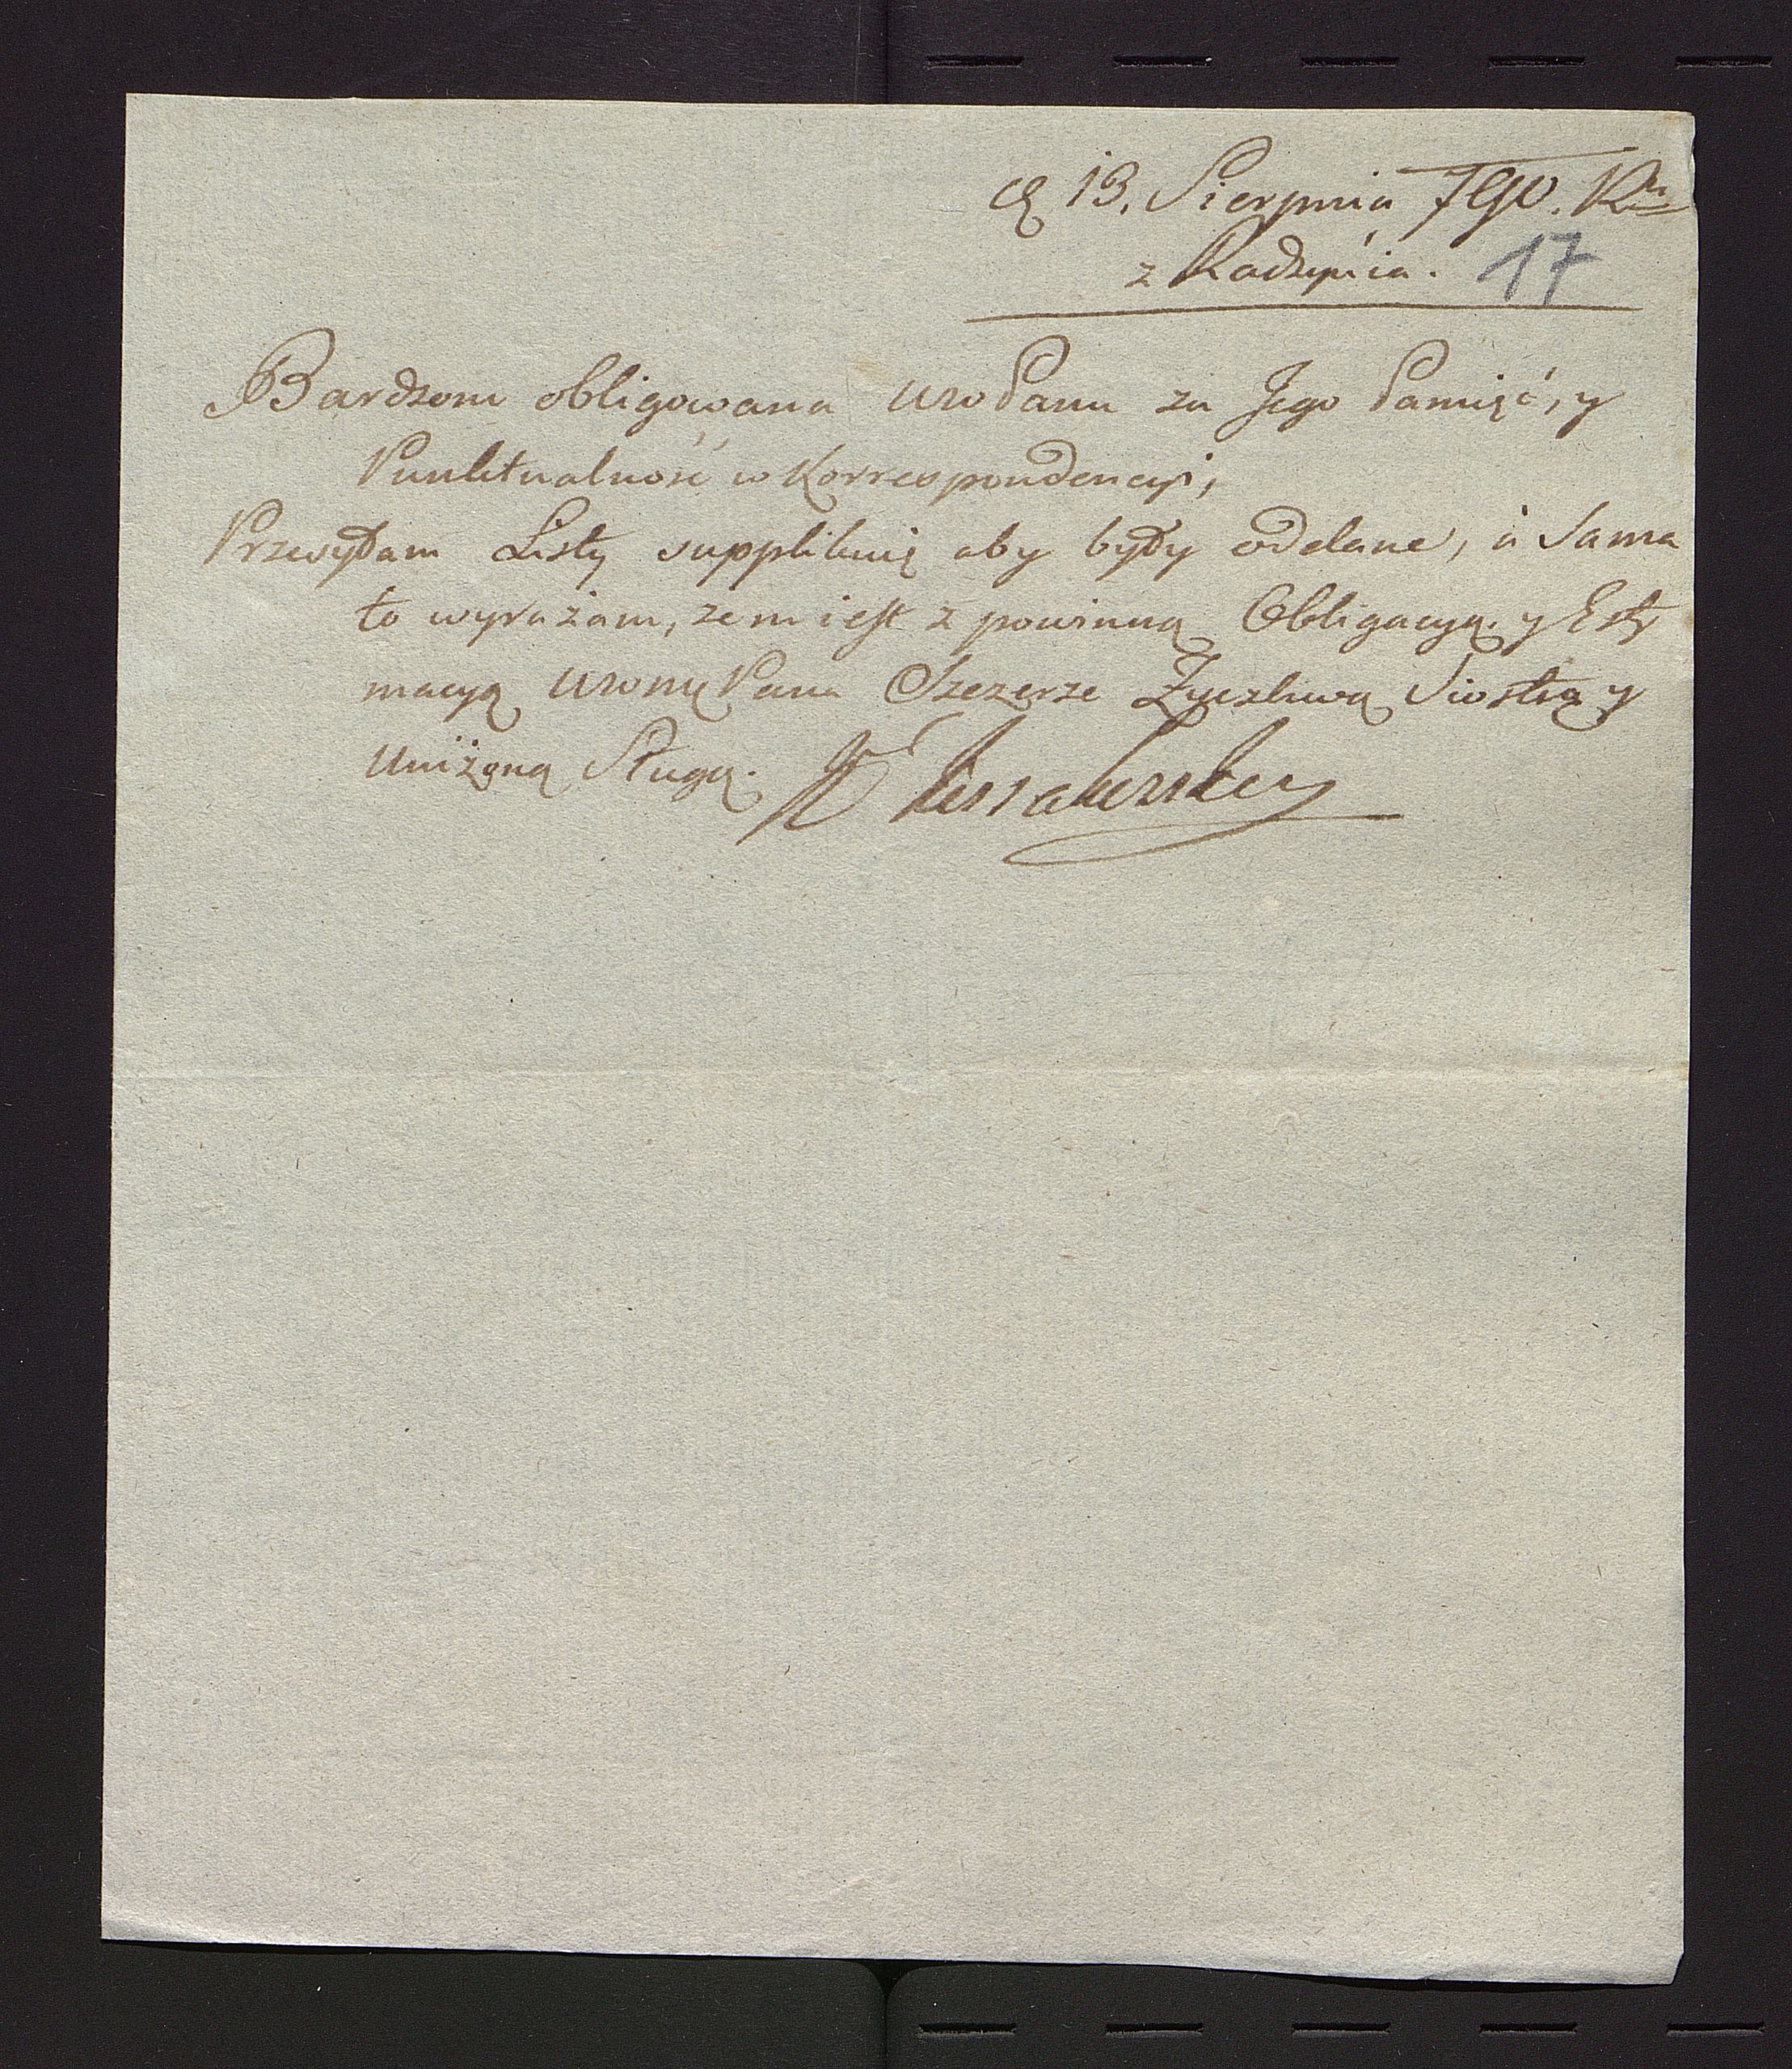 d 13. Sierpnia 790. Ru
z Radzynia. 17
Bardzom obligowana WWoPanu za Jego Pamięć, y
Punktualność w Korrespondencyi,
Przesyłam Listy supplikuię aby były oddane, à Sama
to wyrażam, żem iest z powinną Obligacyą y Esty
macyą WWoMęPana Szczerze Życzliwą Siostrą y
Uniżoną Sługą.